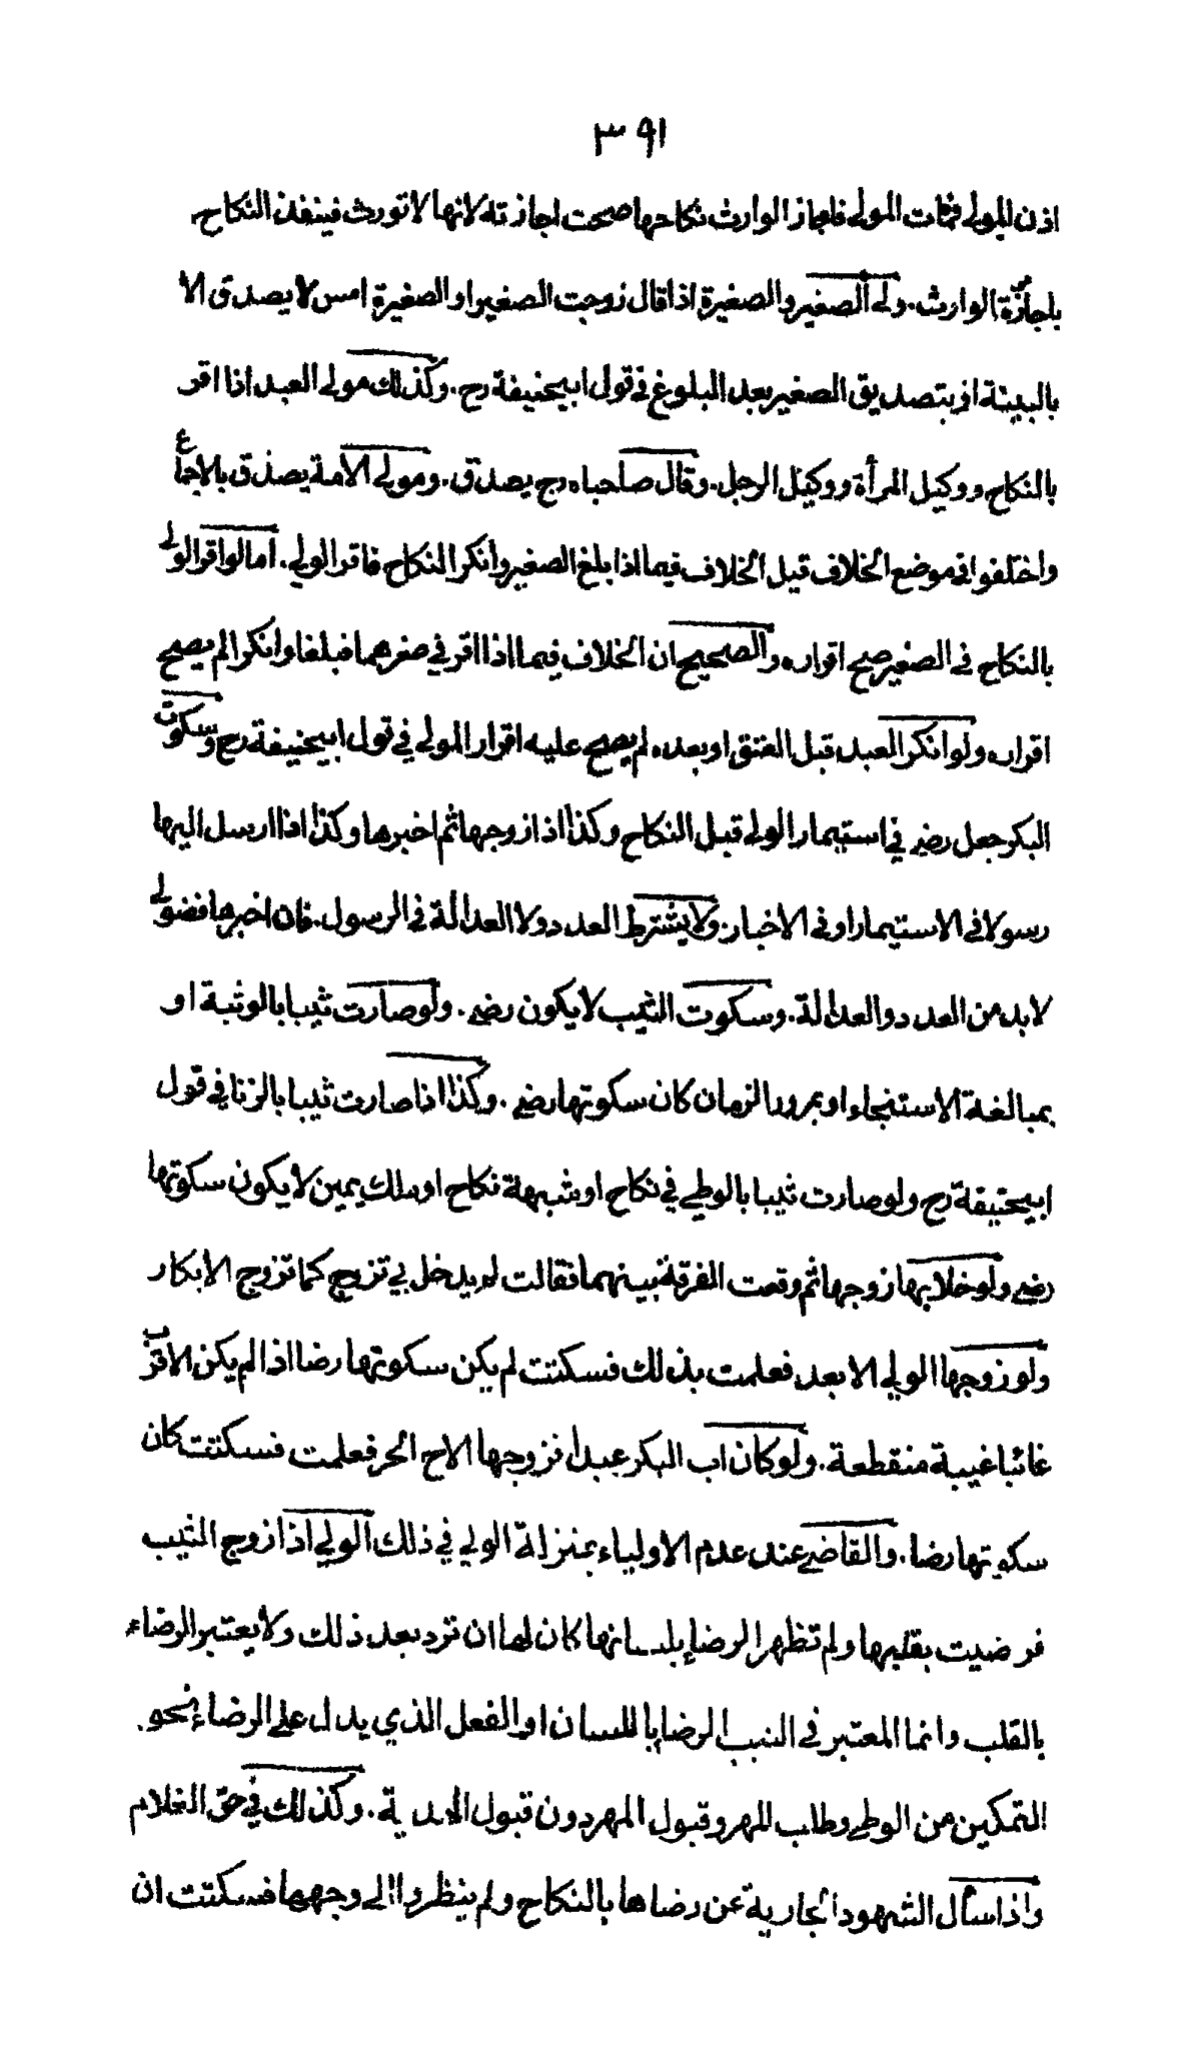 ٣٩١
اذن المولى فمات المولى فاجاز الوارث نكاحها صحت اجازته لانها لا تورث فينفذ النكاح
باجازة الوارث. ولى الصغير والصغيرة اذا قال زوجت الصغير او الصغيرة امس لا يصدق الا
بالبينة او بتصديق الصغير بعد البلوغ في قول ابيحنيفة رح. وكذلك مولى العبد اذا اقر
بالنكاح ووكيل المرأة ووكيل الرجل. وقال صاحباه رح يصدق. ومولى الامة يصدق بالاجماع
واختلفوا في موضع الخلاف قيل الخلاف فيما اذا بلغ الصغير وانكر النكاح فاقر الولي. اما لو اقر الولي
بالنكاح في الصغير صح اقراره والصحيح ان الخلاف فيما اذا اقر في صغرهما فبلغا وانكرا لم يصح
اقراره ولو انكر العبد قبل العتق او بعده لم يصح عليه اقرار المولى في قول ابيحنيفة رح وسكوت
البكر جعل رضى في استيمار الولى قبل النكاح وكذا اذا زوجها ثم اخبرها وكذا اذا ارسل اليها
رسولا في الاستيمار او في الاخبار. ولا يشترط العدد ولا العدالة في الرسول. فان اخبرها فضولي
لا بد من العدد والعدالة. وسكوت الثيب لا يكون رضى. ولو صارت ثيبا بالوثبة او
بمبالغة الاستنجاء او بمرور الزمان كان سكوتها رضى. وكذا اذا صارت ثيبا بالزنا في قول
ابيحنيفة رح ولو صارت ثيبا بالوطي في نكاح او شبهة نكاح او ملك يمين لا يكون سكوتها
رضى ولو خلا بها زوجها ثم وقعت الفرقة بينهما فقالت لم يدخل بي تزوج كما تزوج الابكار
ولو زوجها الولي الابعد فعلمت بذلك فسكتت لم يكن سكوتها رضا اذا لم يكن الاقرب
غائبا غيبة منقطعة. ولو كان اب البكر عبدا فزوجها الاخ الحر فعلمت فسكتت كان
سكوتها رضا. والقاضي عند عدم الاولياء بمنزلة الولي في ذلك الولي اذا زوج الثيب
فرضيت بقلبها ولم تظهر الرضا بلسانها كان لها ان ترد بعد ذلك ولا يعتبر الرضاء
بالقلب وانما المعتبر في الثيب الرضا باللسان او الفعل الذي يدل على الرضاء نحو
التمكين من الوطي وطلب المهر وقبول المهر دون قبول الهدية. وكذلك في حق الغلام
واذا سأل الشهود الجارية عن رضاها بالنكاح ولم ينظروا الى وجهها فسكتت ان